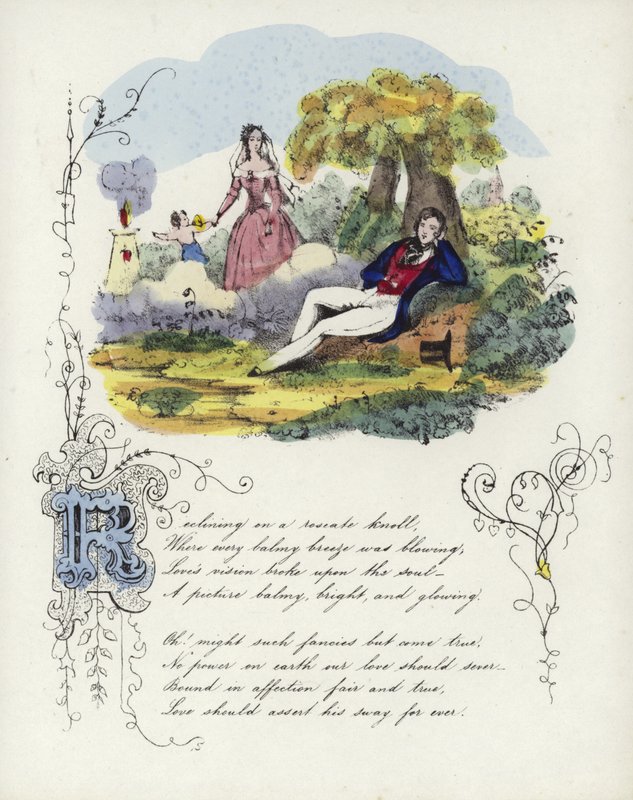 Reclining on a roseate knoll,
Where every balmy breeze was blowing,
Love's vision broke upon the soul—
A picture balmy, bright, and glowing.
Oh! might such fancies but come true,
No power on earth our love should sever—
Bound in affection fair and true,
Love should assert his sway for ever.